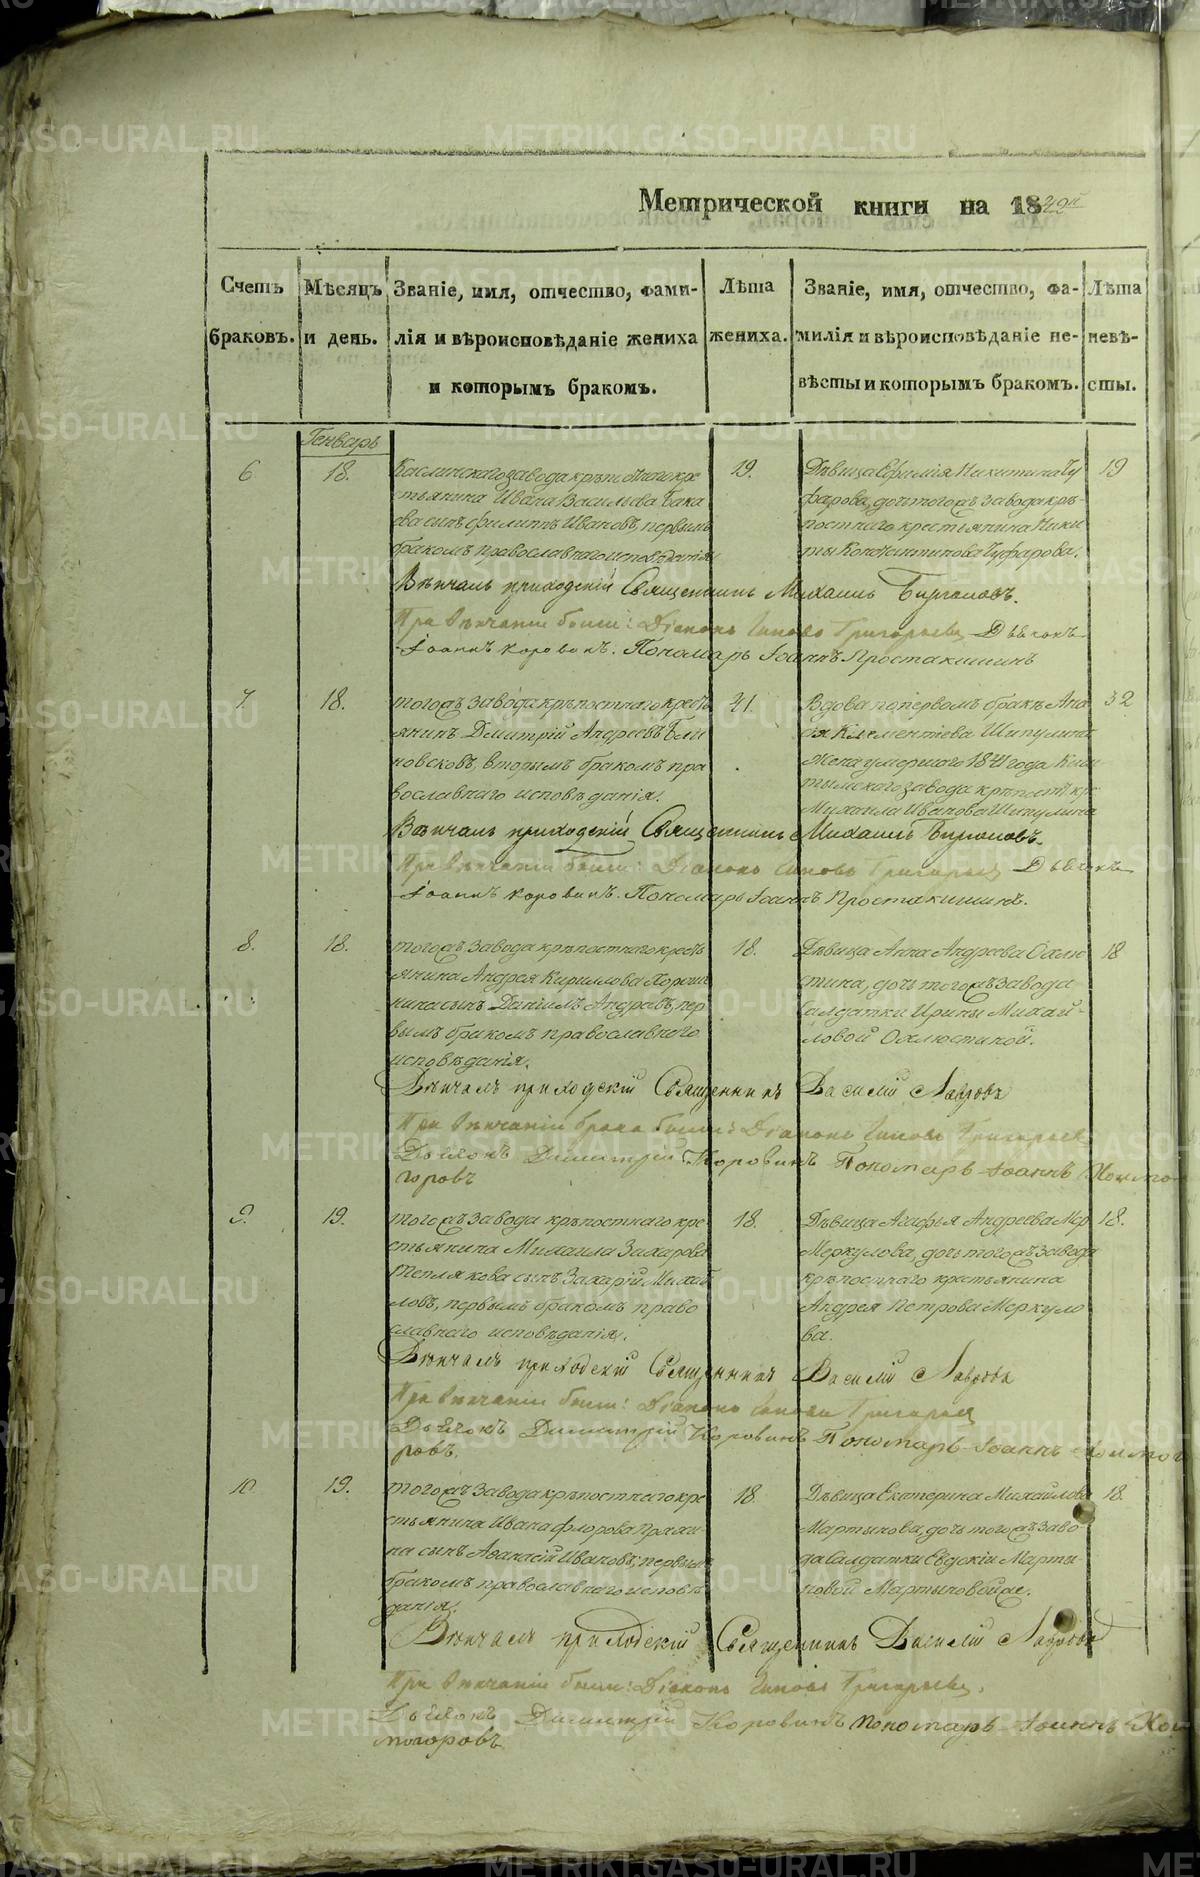 Метрической книги на 1842й
Счетъ браковъ.
Мѣсяцъ и день.
Званіе, имя, отчество, фами-
лія и вѣроисповѣданіе жениха
и которымъ бракомъ.
Лѣта жениха.
Званіе, имя, отчество, фа-
милія и вѣроисповѣданіе не-
вѣсты и которымъ бракомъ.
Лѣта невѣ-
сты.
Генварь
6
18.
Каслинскаго завода крѣпостнаго кре
стьянина Ивана Васильева Бака
ева сынъ Филиппъ Ивановъ, первымъ
бракомъ православнаго исповѣданія
19.
Дѣвица Ефимія Никитина Чу
фарова, дочь тогожъ завода крѣ-
постнаго крестьянина Ники
ты Константинова Чуфарова.
19
Вѣнчалъ приходскій Священникъ Михаилъ Бирюковъ.
При вѣнчаніи были: Діаконъ Григорьевъ Дьячокъ
Іоаннъ Коровинъ. Пономарь Іоаннъ Простакишинъ
7.
18.
тогожъ завода крѣпостнаго крест
янинъ Дмитрій Андреевъ Бли
новсковъ, вторымъ бракомъ пра
вославнаго исповѣданія.
41.
Вдова по первомъ бракѣ Ана
сія Климентіева Шипулина
жена умершаго 1841 года Кыш
тымскаго завода крѣпост: кр:
Михаила Иванова Шипулина
32
Вѣнчалъ приходскій Священникъ Михаилъ Бирюковъ.
При вѣнчаніи были: Діаконъ Григорьевъ Дьячокъ
Іоаннъ Коровинъ. Пономарь Іоаннъ Простакишинъ.
8.
18.
тогожъ завода крѣпостнаго кресть
янина Андрея Кирилова Хорош
нина сынъ Даніилъ Андреевъ, пер
вымъ бракомъ православнаго
исповѣданія.
18.
Дѣвица Анна Андреева Охлю
стина, дочь тогожъ завода
салдатки Ирины Михай-
ловой Охлюстиной.
18
Вѣнчалъ приходскій Священникъ Василій Лавровъ
При вѣнчаніи брака были: Діаконъ Григорьевъ
Дьячокъ Димитрій Коровинъ Пономарь Іоаннъ Холмо
горовъ
9.
19.
тогожъ завода крѣпостнаго кре
стьянина Михаила Захарова
Теплякова сынъ Захарій Михай
ловъ, первымъ бракомъ право
славнаго исповѣданія.
18.
Дѣвица Агафья Андреева Мер
Меркулова, дочь тогожъ завода
крѣпостнаго крестьянина
Андрея Петрова Меркуло
ва.
18.
Вѣнчалъ приходскій Священникъ Василій Лавровъ
При вѣнчаніи были: Діаконъ Григорьевъ
Дьячокъ Димитрій Коровинъ Пономарь Іоаннъ Холмого
ровъ.
10.
19.
тогожъ завода крѣпостнаго кре
стьянина Ивана Флорова Пряхи-
на сынъ Аѳанасій Ивановъ, первымъ
бракомъ православнаго исповѣ
данія.
18.
Дѣвица Екатерина Михайлова
Мартынова, дочь тогожъ заво-
да Салдатки Евдокіи Марты-
новой Мартыновой же.
18.
Вѣнчалъ приходскій Священникъ Василій Лавровъ
При вѣнчаніи были: Діаконъ Григорьевъ.
Дьячокъ Димитрій Коровинъ Пономарь Іоаннъ Хол
могоровъ
METRIKI.GASO-URAL.RU